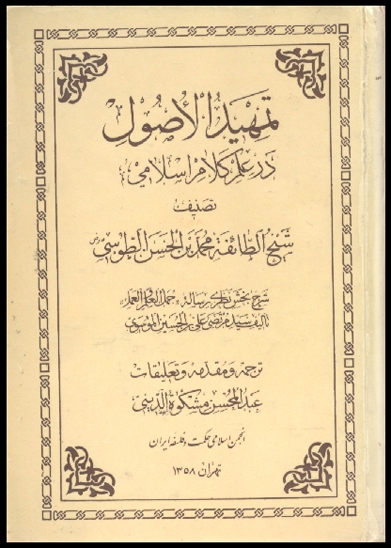 تمهيد الأصول
در علم کلام اسلامی
تصنیف
شیخ الطائفة محمد بن الحسن الطوسی
شرح بخش نظری رسالهٔ «جمل العلم و العمل»
تألیف سید مرتضی علی بن الحسین الموسوی
ترجمه و مقدمه و تعلیقات
عبدالمحسن مشکوة الدینی
انجمن اسلامی حکمت و فلسفه ایران
تهران ۱۳۵۸